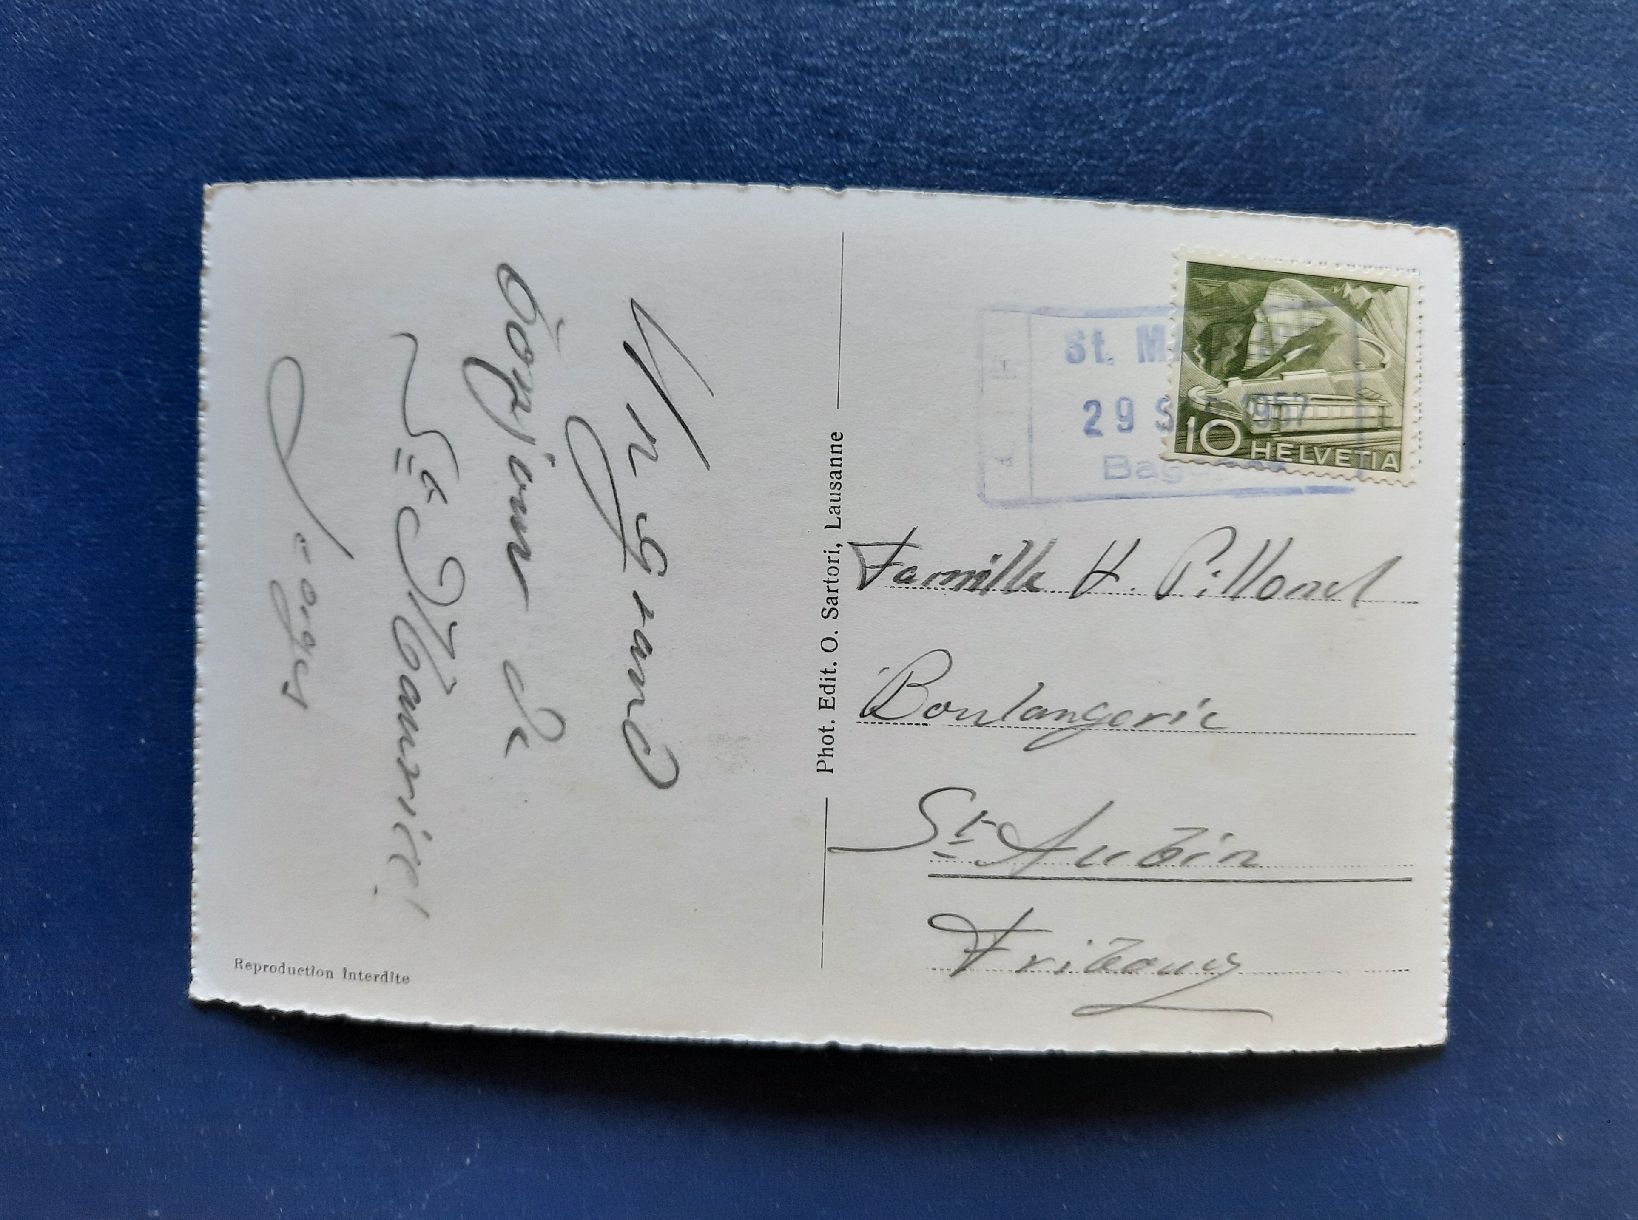 Un grand
bonjour de
St Maurice!
Phot. Edit. O. Sartori, Lausanne
St. M
29 S 1957
Bag
10 HELVETIA
Famille H. Pillonel
Boulangerie
St Aubin
Fribourg
Reproduction interdite